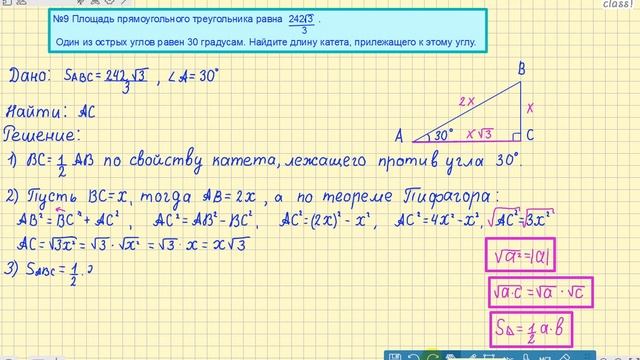 class!
№9 Площадь прямоугольного треугольника равна 242√3/3 .
Один из острых углов равен 30 градусам. Найдите длину катета, прилежащего к этому углу.
Дано: S_ABC = 242√3/3 , ∠A=30°
Найти: AC
Решение:
1) BC = 1/2 AB по свойству катета, лежащего против угла 30°.
2) Пусть BC=x, тогда AB=2x , а по теореме Пифагора:
AB²=BC²+AC² , AC²=AB²-BC², AC²=(2x)²-x², AC²=4x²-x², √AC²=√3x²
AC=√3x² = √3·√x² = √3·x = x√3
3) S_ABC = 1/2 ·
B
2x
x
A
30°
x√3
C
√a²=|a|
√a·c=√a·√c
S△=1/2 a·b